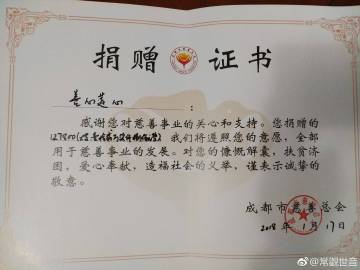 捐赠证书
善心莲心:
感谢您对慈善事业的关心和支持。您捐赠的
我们将遵照您的意愿,全部
用于慈善事业的发展。对您的慷慨解囊,扶贫济
困,爱心奉献,造福社会的义举,谨表示诚挚的
敬意。
成都市慈善总会
2018年1月17日
@常觀世音